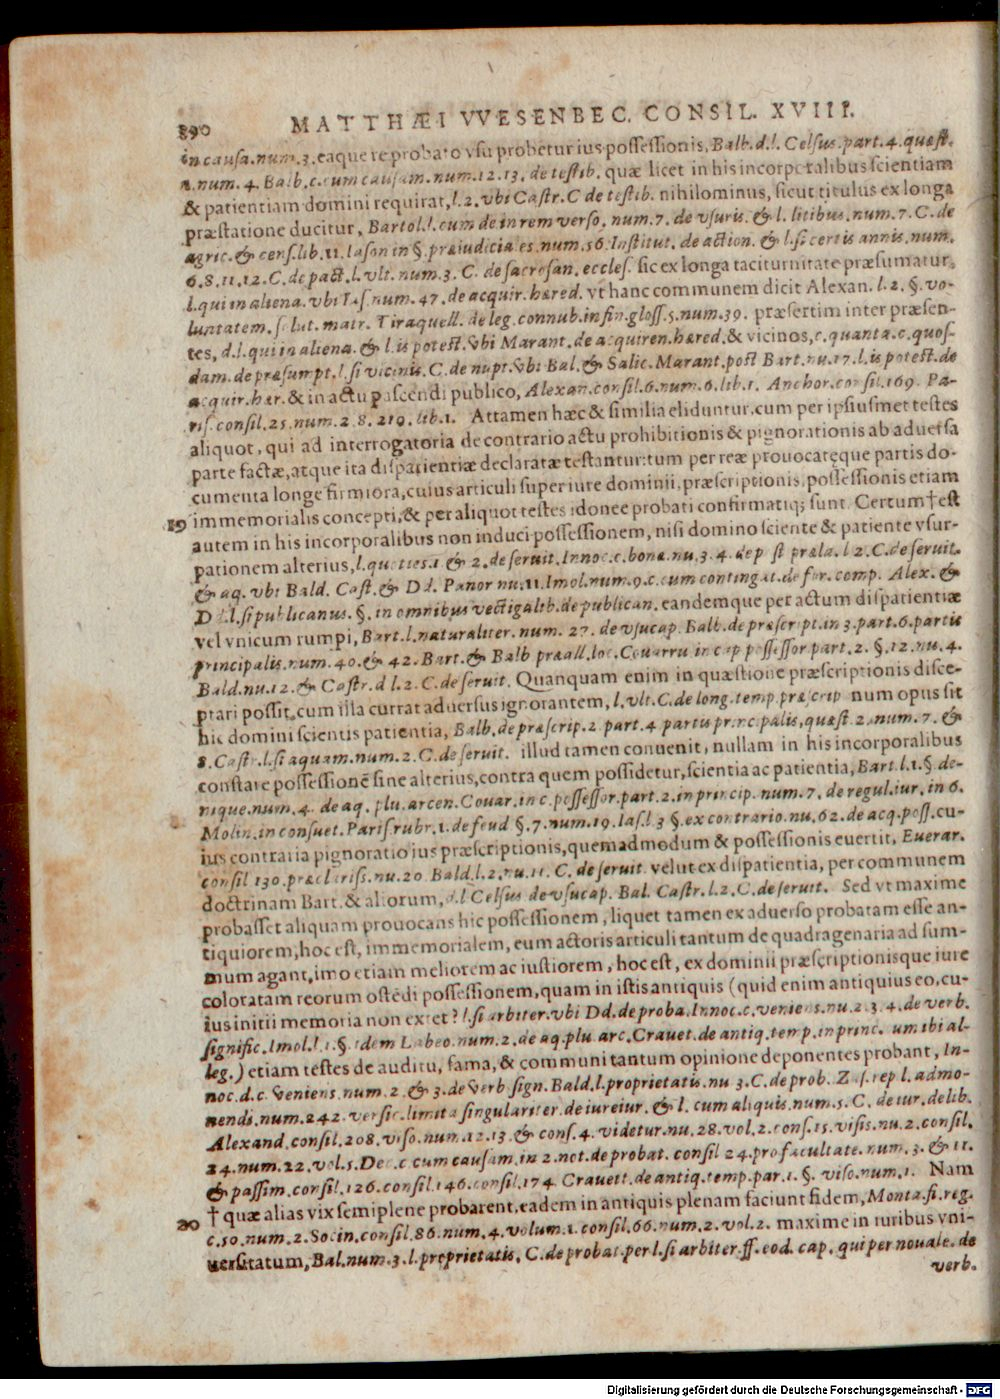 390 MATTHÆI VVESENBEC. CONSIL. XVIII.
in causa. num. 3. eaque re probato vsu probetur ius possessionis, Balb. d. l. Celsus. part. 4. quæst.
2. num. 4. Balb. c. cum causam. num. 12. 13. de testib. quæ licet in his incorporalibus scientiam
& patientiam domini requirat, l. 2. vbi Castr. C de testib. nihilominus, sicut titulus ex longa
præstatione ducitur, Bartol. l. cum de in rem verso, num. 7. de vsuris. & l. litibus. num. 7. C. de
agric. & cens. lib. 11. Iason in §. præiudiciales. num. 56. Institut. de action. & l. si certis annis. num.
6. 8. 11. 12. C. de pact. l. vlt. num. 3. C. de sacrosan. eccles. sic ex longa taciturnitate præsumatur,
l. qui in aliena. vbi Ias. num. 47. de acquir. hæred. vt hanc communem dicit Alexan. l. 2. §. vo-
luntatem. solut. matr. Tiraquell. de leg. connub. in fin. gloss. 5. num. 39. præsertim inter præsen-
tes, d. l. qui in aliena. & l. is potest. vbi Marant. de acquiren. hæred. & vicinos, c. quanta. c. quos-
dam. de præsumpt. l. si vicinis. C. de nupt. vbi Bal. & Salic. Marant. post Bart. nu. 17. l. is potest. de
acquir. hær. & in actu pascendi publico, Alexan. consil. 6. num. 6. lib. 1. Anchor. consil. 169. Pa-
ris. consil. 25. num. 2. 8. 219. lib. 1. Attamen hæc & similia eliduntur. cum per ipsiusmet testes
aliquot, qui ad interrogatoria de contrario actu prohibitionis & pignorationis ab aduersa
parte factæ, atque ita dispatientiæ declaratæ testantur: tum per reæ prouocatęque partis do-
cumenta longe firmiora, cuius articuli super iure dominii, præscriptionis, possessionis etiam
immemorialis concepti, & per aliquot testes idonee probati confirmatiq; sunt. Certum † est
19 autem in his incorporalibus non induci possessionem, nisi domino sciente & patiente vsur-
pationem alterius, l. quoties. 1 & 2. de seruit. Innoc. c. bona. nu. 3. 4. de post præla. l 2. C. de seruit.
& aq. vbi Bald. Cast. & Dd. Panor nu. 11. Imol. num. 9. c. cum contingat. de for. comp. Alex. &
Dd. l. si publicanus. §. in omnibus vectigalib. de publican. eandemque per actum dispatientiæ
vel vnicum rumpi, Bart. l. naturaliter. num. 27. de vsucap. Balb. de præscript. in 3. part. 6. partis
principalis. num. 40. & 42. Bart. & Balb præall. loc. Couarru in cap possessor. part. 2. §. 12. nu. 4.
Bald. nu. 12. & Castr. d l. 2. C. de seruit. Quanquam enim in quæstione præscriptionis disce-
ptari possit, cum illa currat aduersus ignorantem, l. vlt. C. de long. temp. præscrip num opus sit
hic domini scientis patientia, Balb. de præscrip. 2 part. 4 partis principalis, quæst. 2. num. 7. &
8. Castr. l. si aquam. num. 2. C. de seruit. illud tamen conuenit, nullam in his incorporalibus
constare possessionē sine alterius, contra quem possidetur, scientia ac patientia, Bart. l. 1. §. de-
nique. num. 4. de aq. plu. arcen. Couar. in c. possessor. part. 2. in princip. num. 7. de regul. iur. in 6.
Molin. in consuet. Paris. rubr. 1. de feud §. 7. num. 19. Ias. l 3 §. ex contrario. nu. 62. de acq. poss. cu-
ius contraria pignoratio ius præscriptionis, quemadmodum & possessionis euertit, Euerar.
consil 130. præclariss. nu. 20. Bald. l. 2. nu. 11. C. de seruit. velut ex dispatientia, per communem
doctrinam Bart. & aliorum, d. l Celsus de vsucap. Bal. Castr. l. 2. C. de seruit. Sed vt maxime
probasset aliquam prouocans hic possessionem, liquet tamen ex aduerso probatam esse an-
tiquiorem, hoc est, immemorialem, cum actoris articuli tantum de quadragenaria ad sum-
mum agant, imo etiam meliorem ac iustiorem, hoc est, ex dominii præscriptionisque iure
coloratam reorum ostēdi possessionem, quam in istis antiquis (quid enim antiquius eo, cu-
ius initii memoria non extet? l. si arbiter. vbi Dd. de proba. Innoc. c. veniens. nu. 2. 3. 4. de verb.
signific. Imol. l. 1. §. idem Labeo. num. 2. de aq. plu. arc. Crauet. de antiq. temp. in princ. um ibi al-
leg.) etiam testes de auditu, fama, & communi tantum opinione deponentes probant, In-
noc. d. c. veniens. num. 2. & 3. de verb sign. Bald. l. proprietatis. nu 3. C. de prob. Zas. rep l. admo-
nendi. num. 242. versic. limita singulariter. de iureiur. & l. cum aliquis. num. 5. C. de iur. delib.
Alexand. consil. 208. viso. num. 12. 13 & cons. 4. videtur. nu. 28. vol. 2. cons. 15. visis. nu. 2. consil.
24. num. 22. vol. 5. Dec. c cum causam. in 2. not. de probat. consil 24. pro facultate. num. 3. & 11.
& passim. consil. 126. consil. 146. consil. 174 Crauett. de antiq. temp. par. 1. §. viso. num. 1. Nam
20 † quæ alias vix semiplene probarent, eadem in antiquis plenam faciunt fidem, Monta. si. reg.
c. 50. num. 2. Socin. consil. 86. num. 4. volum. 1. consil. 66. num. 2. vol. 2. maxime in iuribus vni-
uersitatum, Bal. num. 3. l. proprietatis, C. de probat. per l. si arbiter. ff. eod. cap. qui per nouale. de
verb.
Digitalisierung gefördert durch die Deutsche Forschungsgemeinschaft - DFG